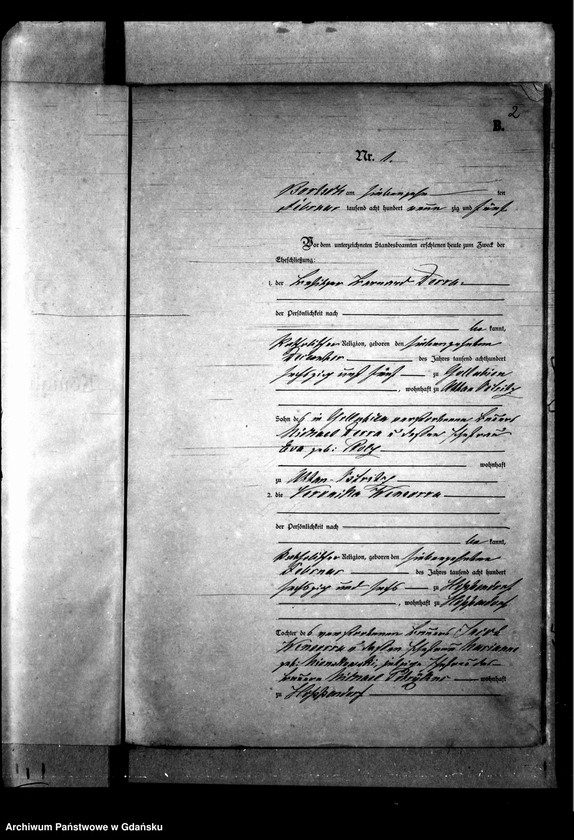 2
B.
Nr. 1.
am siebenzehn ten
Februar tausend acht hundert neun zig und fünf
Vor dem unterzeichneten Standesbeamten erschienen heute zum Zweck der
Eheschließung:
1. der Besitzer Bernard Dorra
der Persönlichkeit nach
be kannt,
katholischer Religion, geboren den siebenzehnten
des Jahres tausend achthundert
sechszig und fünf zu
, wohnhaft zu
Sohn des in verstorbenen Bauers
Michael Dorra u dessen Ehefrau
Eva geb:
wohnhaft
zu
2. die Veronika Wensorra
der Persönlichkeit nach
be kannt,
katholischer Religion, geboren den siebenzehnten
Februar des Jahres tausend acht hundert
sechszig und sechs zu Hoppendorf
, wohnhaft zu Hoppendorf
Tochter des verstorbenen Bauers Jacob
Wensorra u dessen Ehefrau Marianna
geb: jetzige Ehefrau des
Bauern Michael wohnhaft
zu Hoppendorf
Archiwum Państwowe w Gdańsku